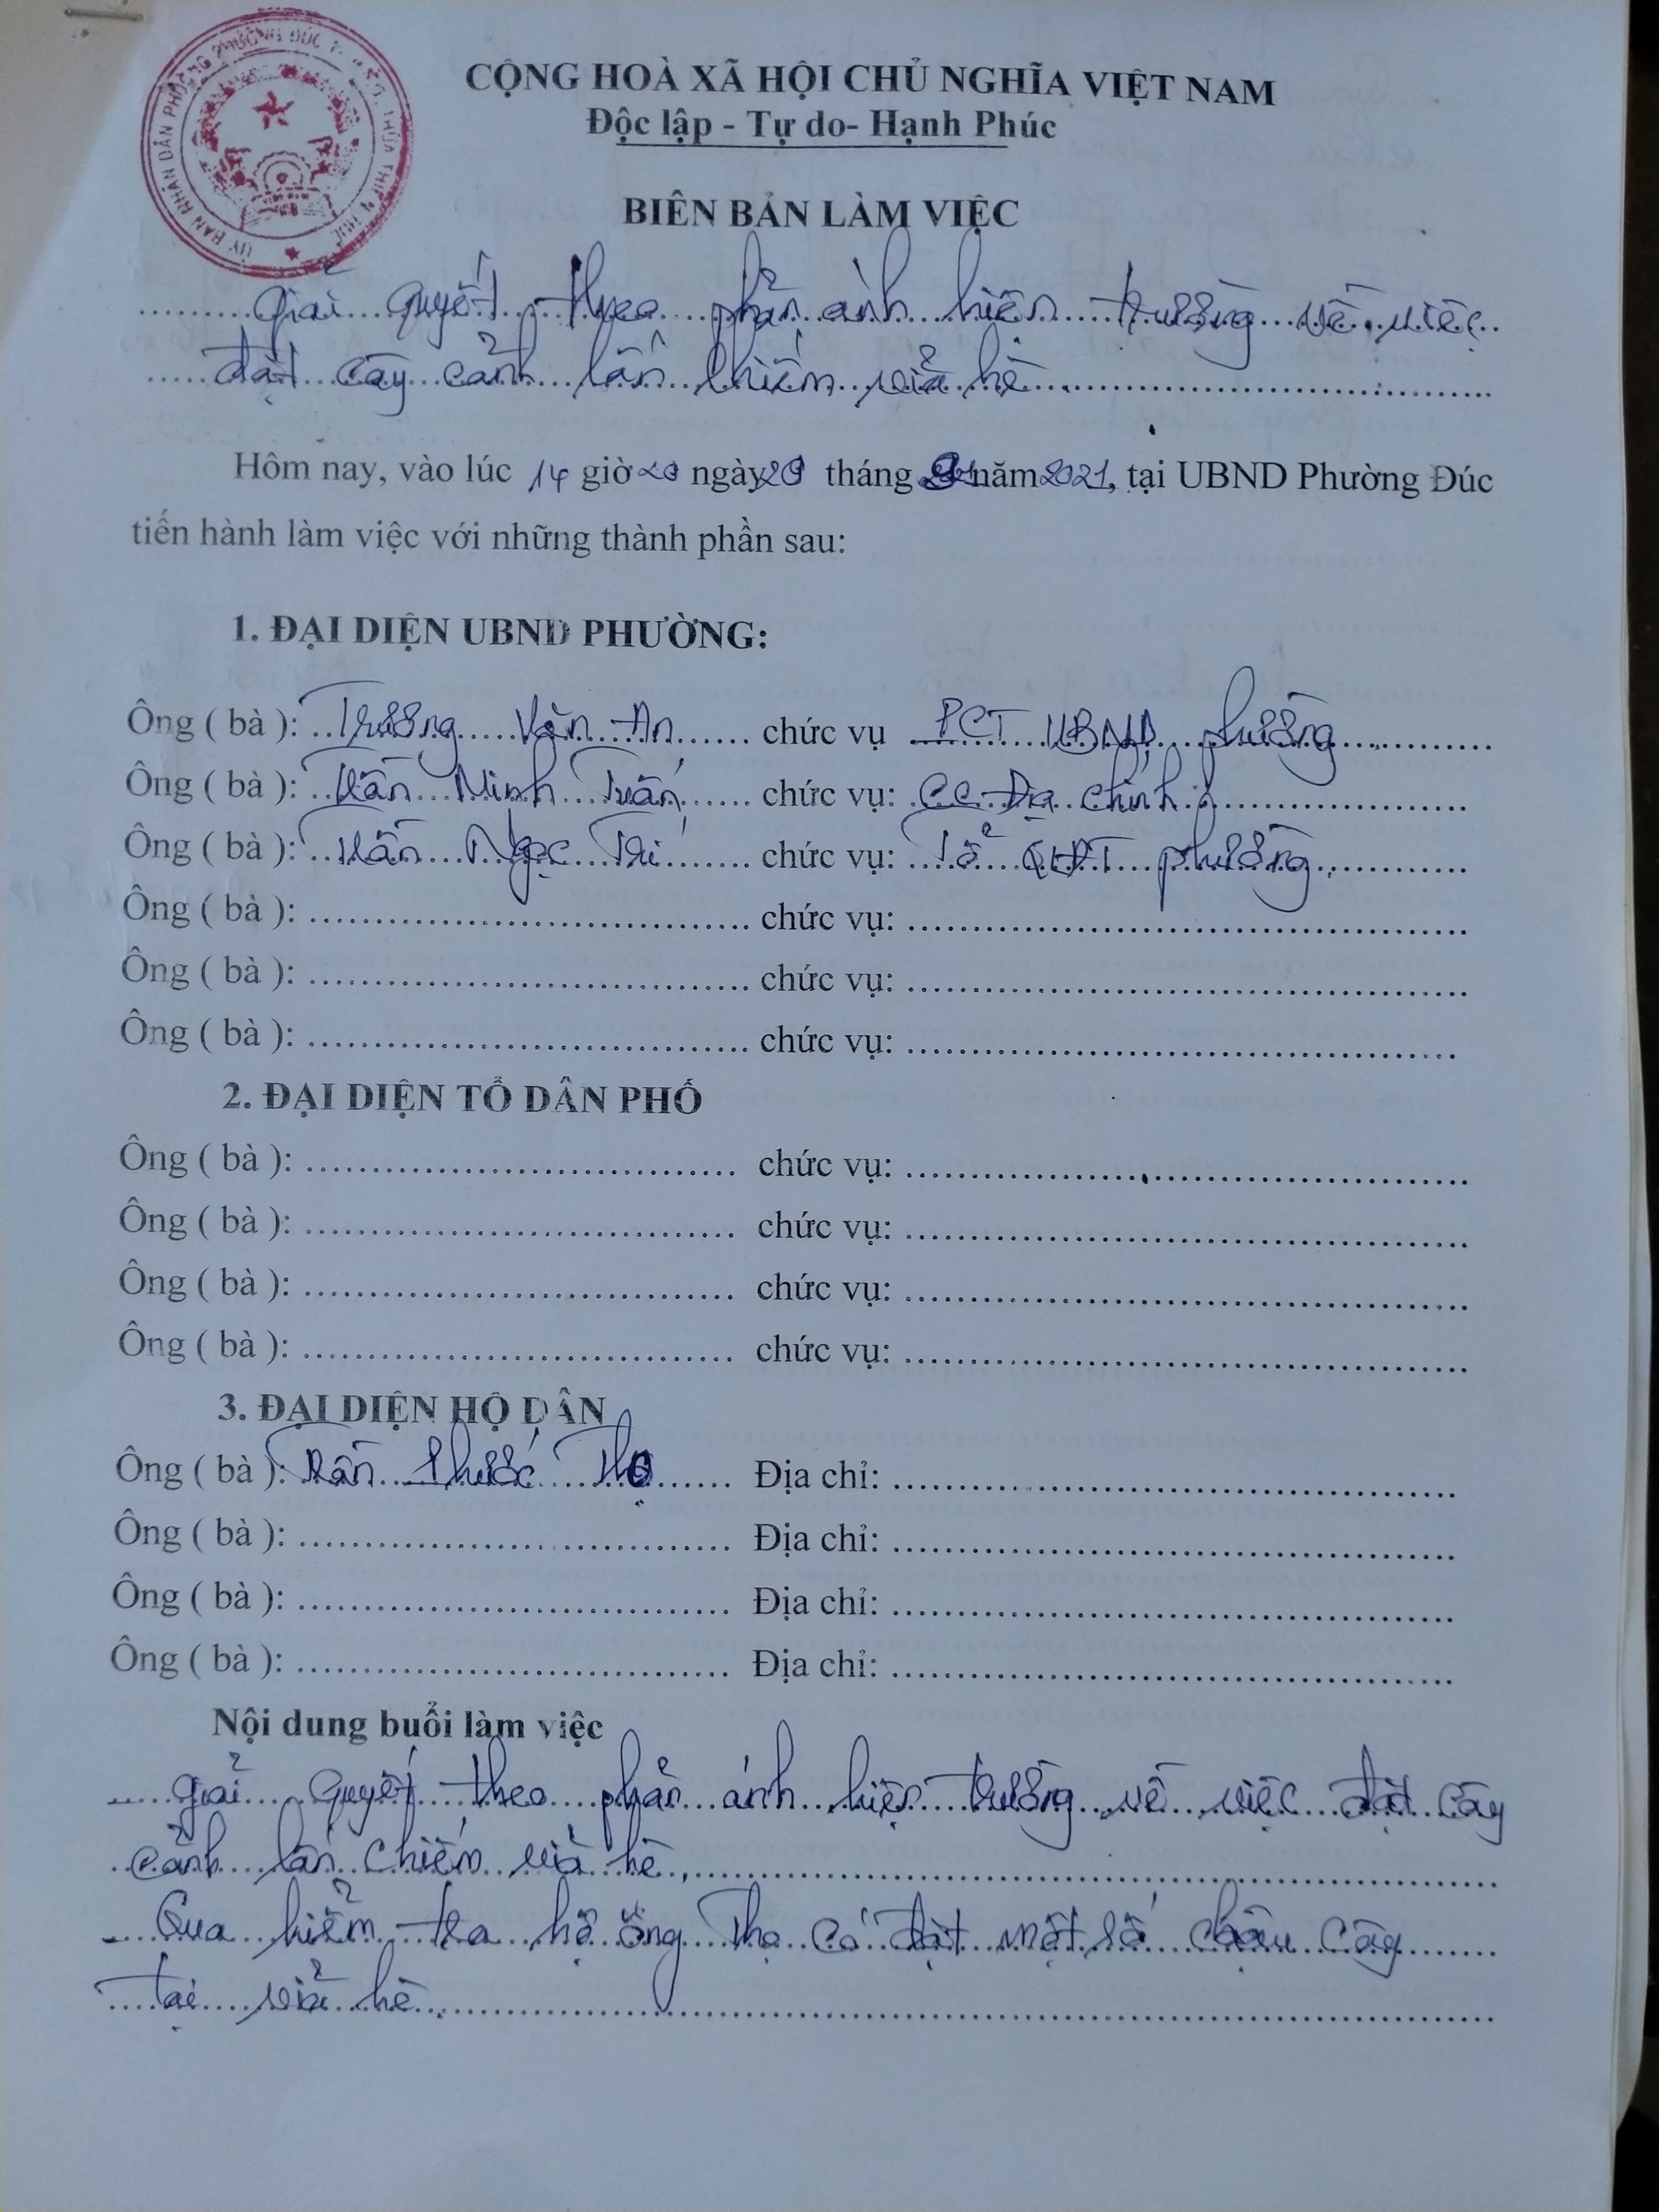 ỦY BAN NHÂN DÂN PHƯỜNG PHƯỜNG ĐÚC THỪA THIÊN HUẾ
CỘNG HOÀ XÃ HỘI CHỦ NGHĨA VIỆT NAM
Độc lập - Tự do- Hạnh Phúc
BIÊN BẢN LÀM VIỆC
giải quyết theo phản ánh hiện trường về việc
đặt cây cảnh lấn chiếm vỉa hè
Hôm nay, vào lúc 14 giờ 20 ngày tháng năm 2021, tại UBND Phường Đúc
tiến hành làm việc với những thành phần sau:
1. ĐẠI DIỆN UBND PHƯỜNG:
Ông ( bà ): Trương Văn An chức vụ PCT UBND phường
Ông ( bà ): Trần Minh Tuấn chức vụ: CC Địa chính
Ông ( bà ): Trần Ngọc Trí chức vụ: Tổ QLĐT phường
Ông ( bà ): ........ chức vụ: ........
Ông ( bà ): ........ chức vụ: ........
Ông ( bà ): ........ chức vụ: ........
2. ĐẠI DIỆN TỔ DÂN PHỐ
Ông ( bà ): ........ chức vụ: ........
Ông ( bà ): ........ chức vụ: ........
Ông ( bà ): ........ chức vụ: ........
Ông ( bà ): ........ chức vụ: ........
3. ĐẠI DIỆN HỘ DÂN
Ông ( bà ): Trần Phước Thọ Địa chỉ: ........
Ông ( bà ): ........ Địa chỉ: ........
Ông ( bà ): ........ Địa chỉ: ........
Ông ( bà ): ........ Địa chỉ: ........
Nội dung buổi làm việc
giải quyết theo phản ánh hiện trường về việc đặt cây
cảnh lấn chiếm vỉa hè.
- Qua kiểm tra hộ ông Thọ có đặt một số chậu cây
tại vỉa hè.